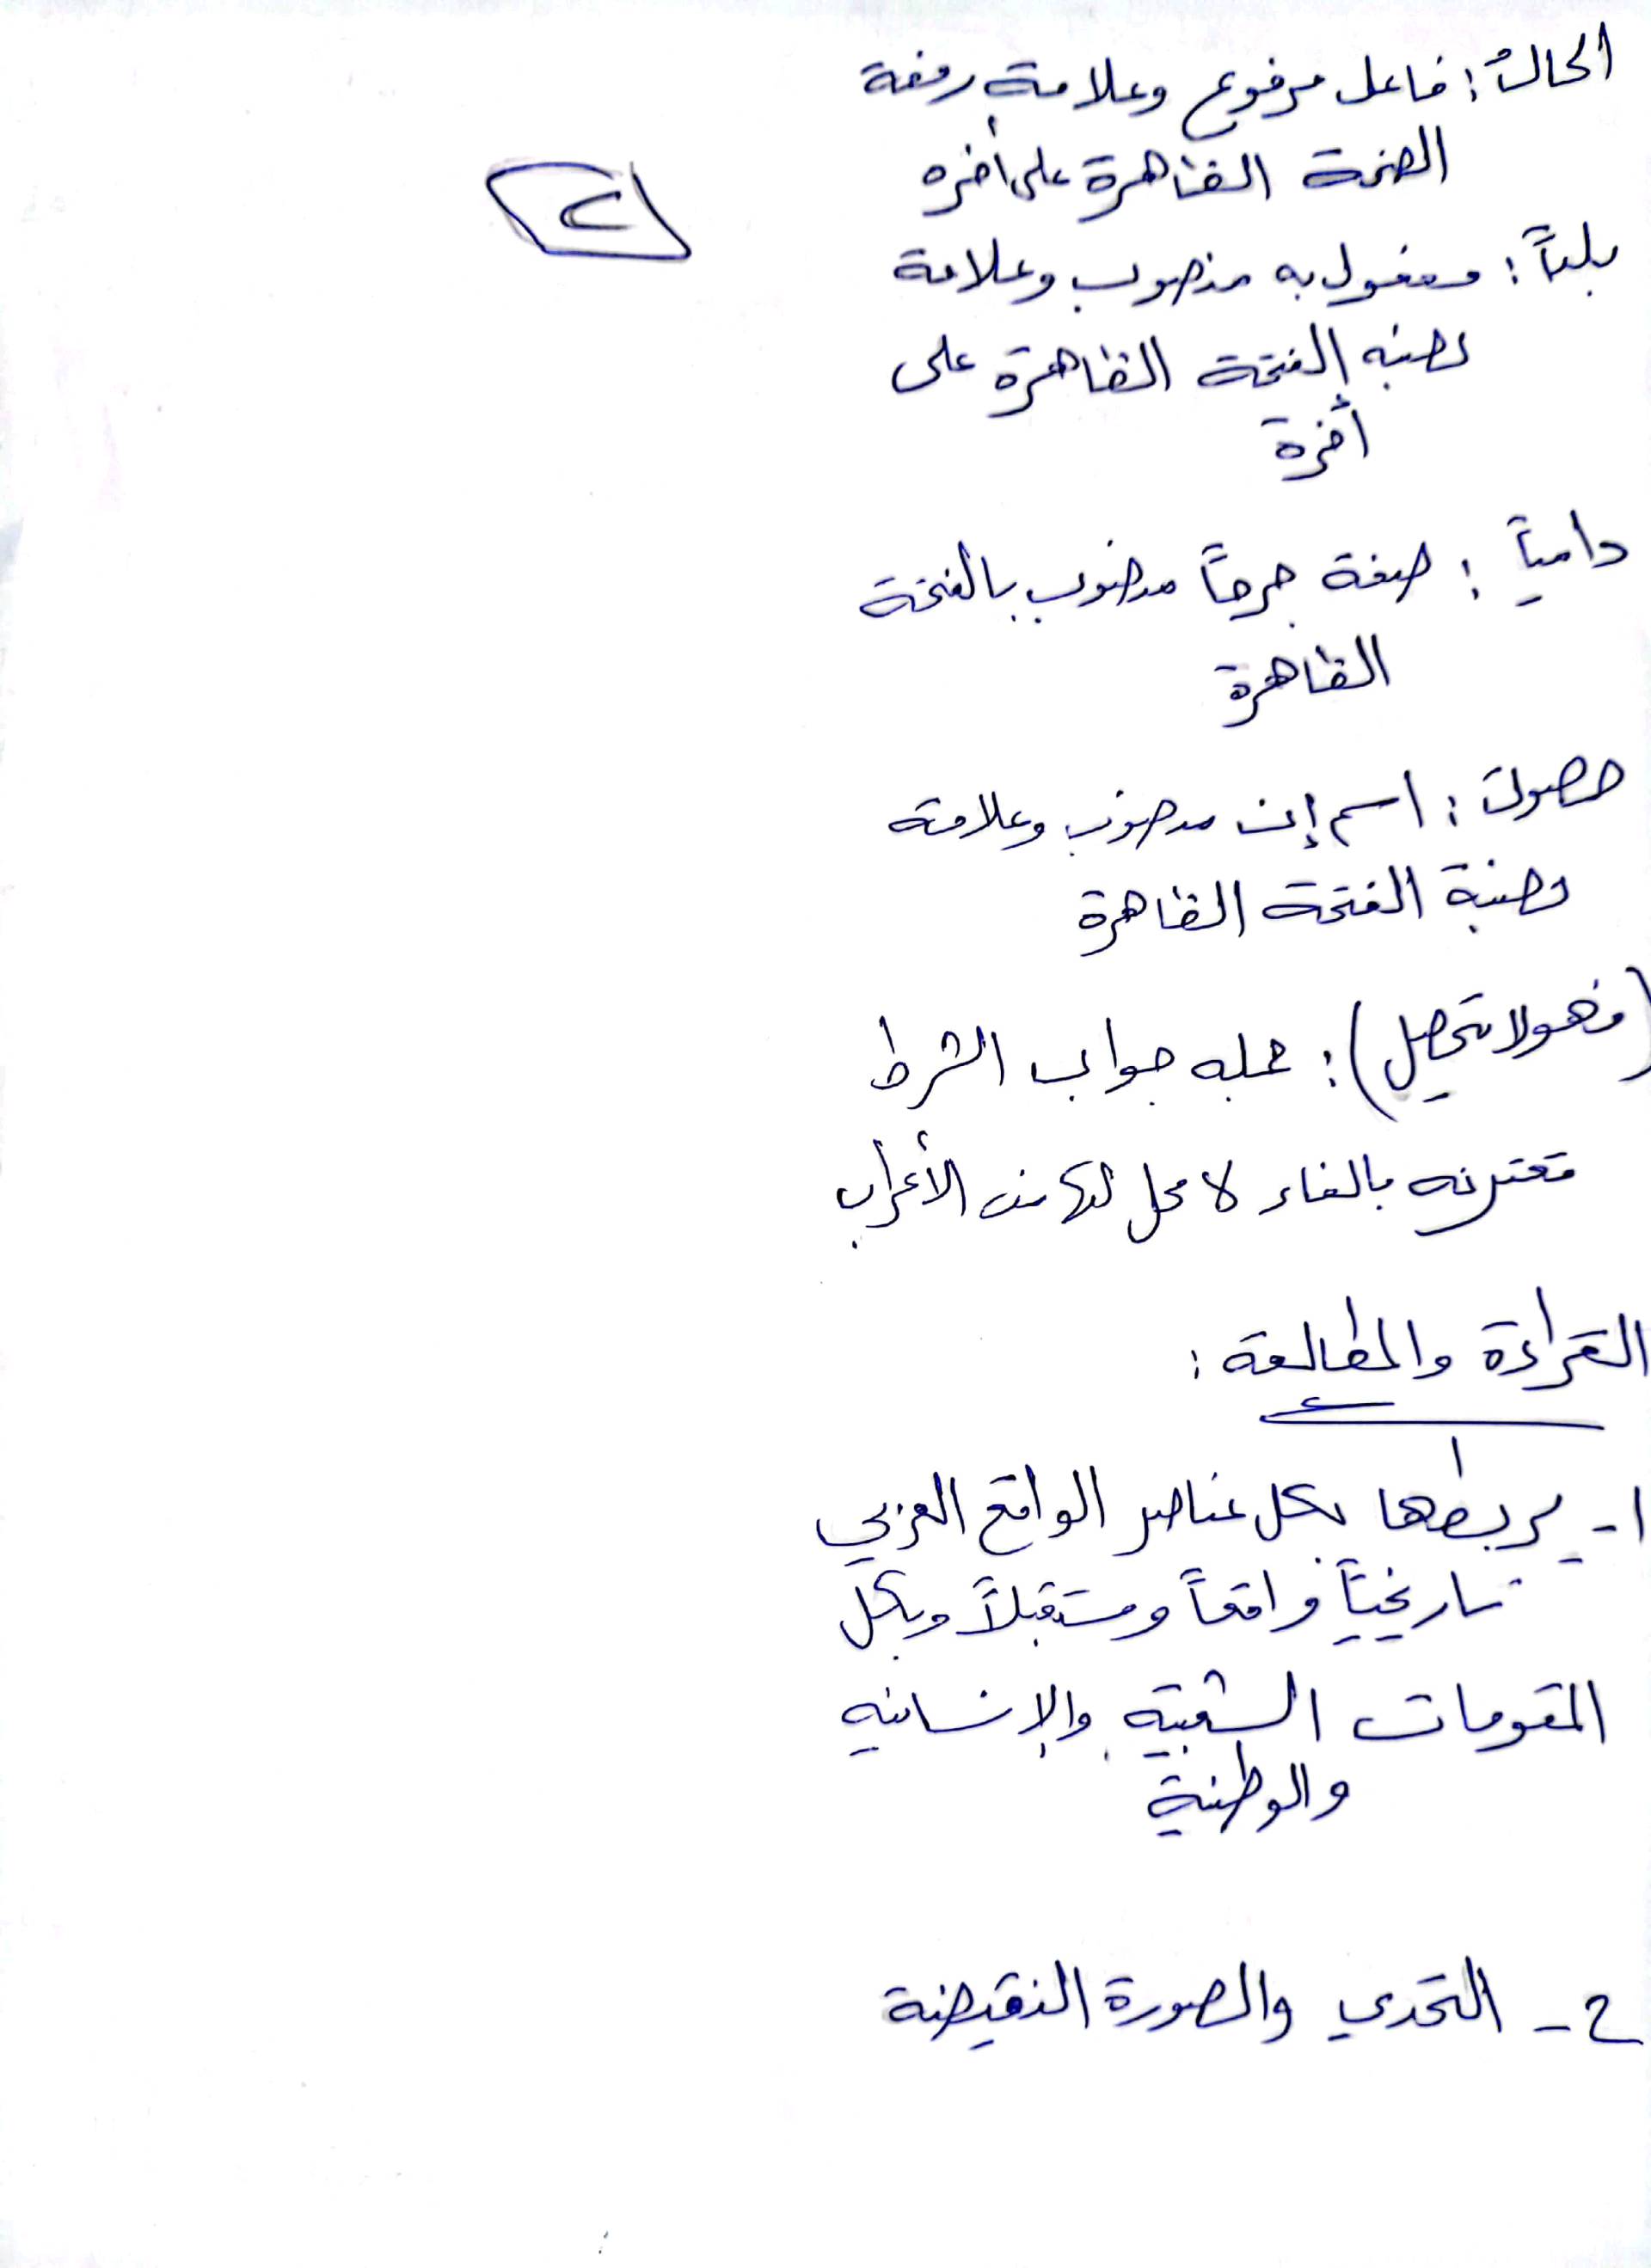 الحالُ : فاعل مرفوع وعلامة رفعة
الضمة الظاهرة على أخره
٢
بلداً : مفعول به منصوب وعلامة
نصبه الفتحة الظاهرة على
أخرة
دامياً : صفة جرحاً منصوب بالفتحة
الظاهرة
حصولَ : اسم إن منصوب وعلامة
نصبة الفتحة الظاهرة
(فهو لا تحصيل) : جمله جواب الشرط
مقترنه بالفاء لا محل لها من الأعراب
القراءة والمطالعة :
١- يربطها بكل عناصر الواقع العربي
تاريخياً واقعاً ومستقبلاً وبكل
المقومات الشعبية والإنسانيه
والوطنية
٢- التحدي والصورة النقيضة